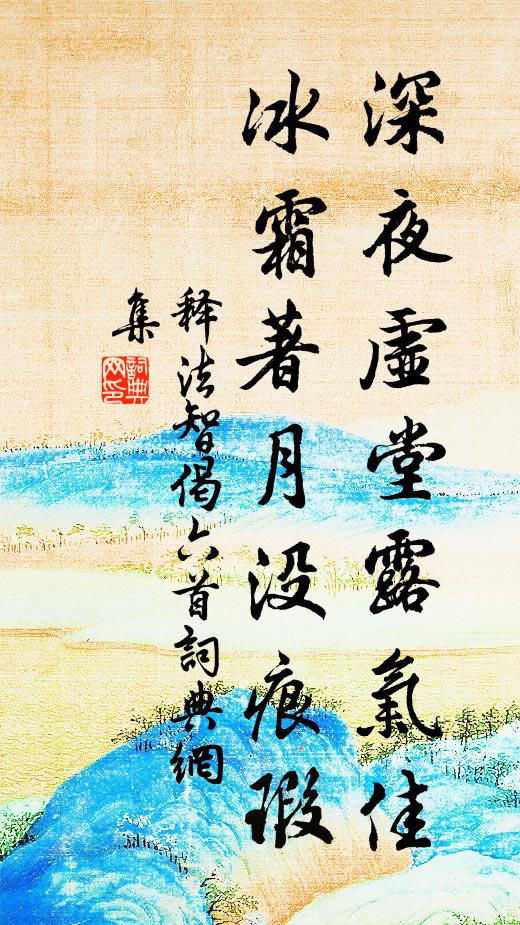 深夜虛堂露氣佳
冰霜著月没痕瑕
释法智偈六首詞典網
集
詞典
网印